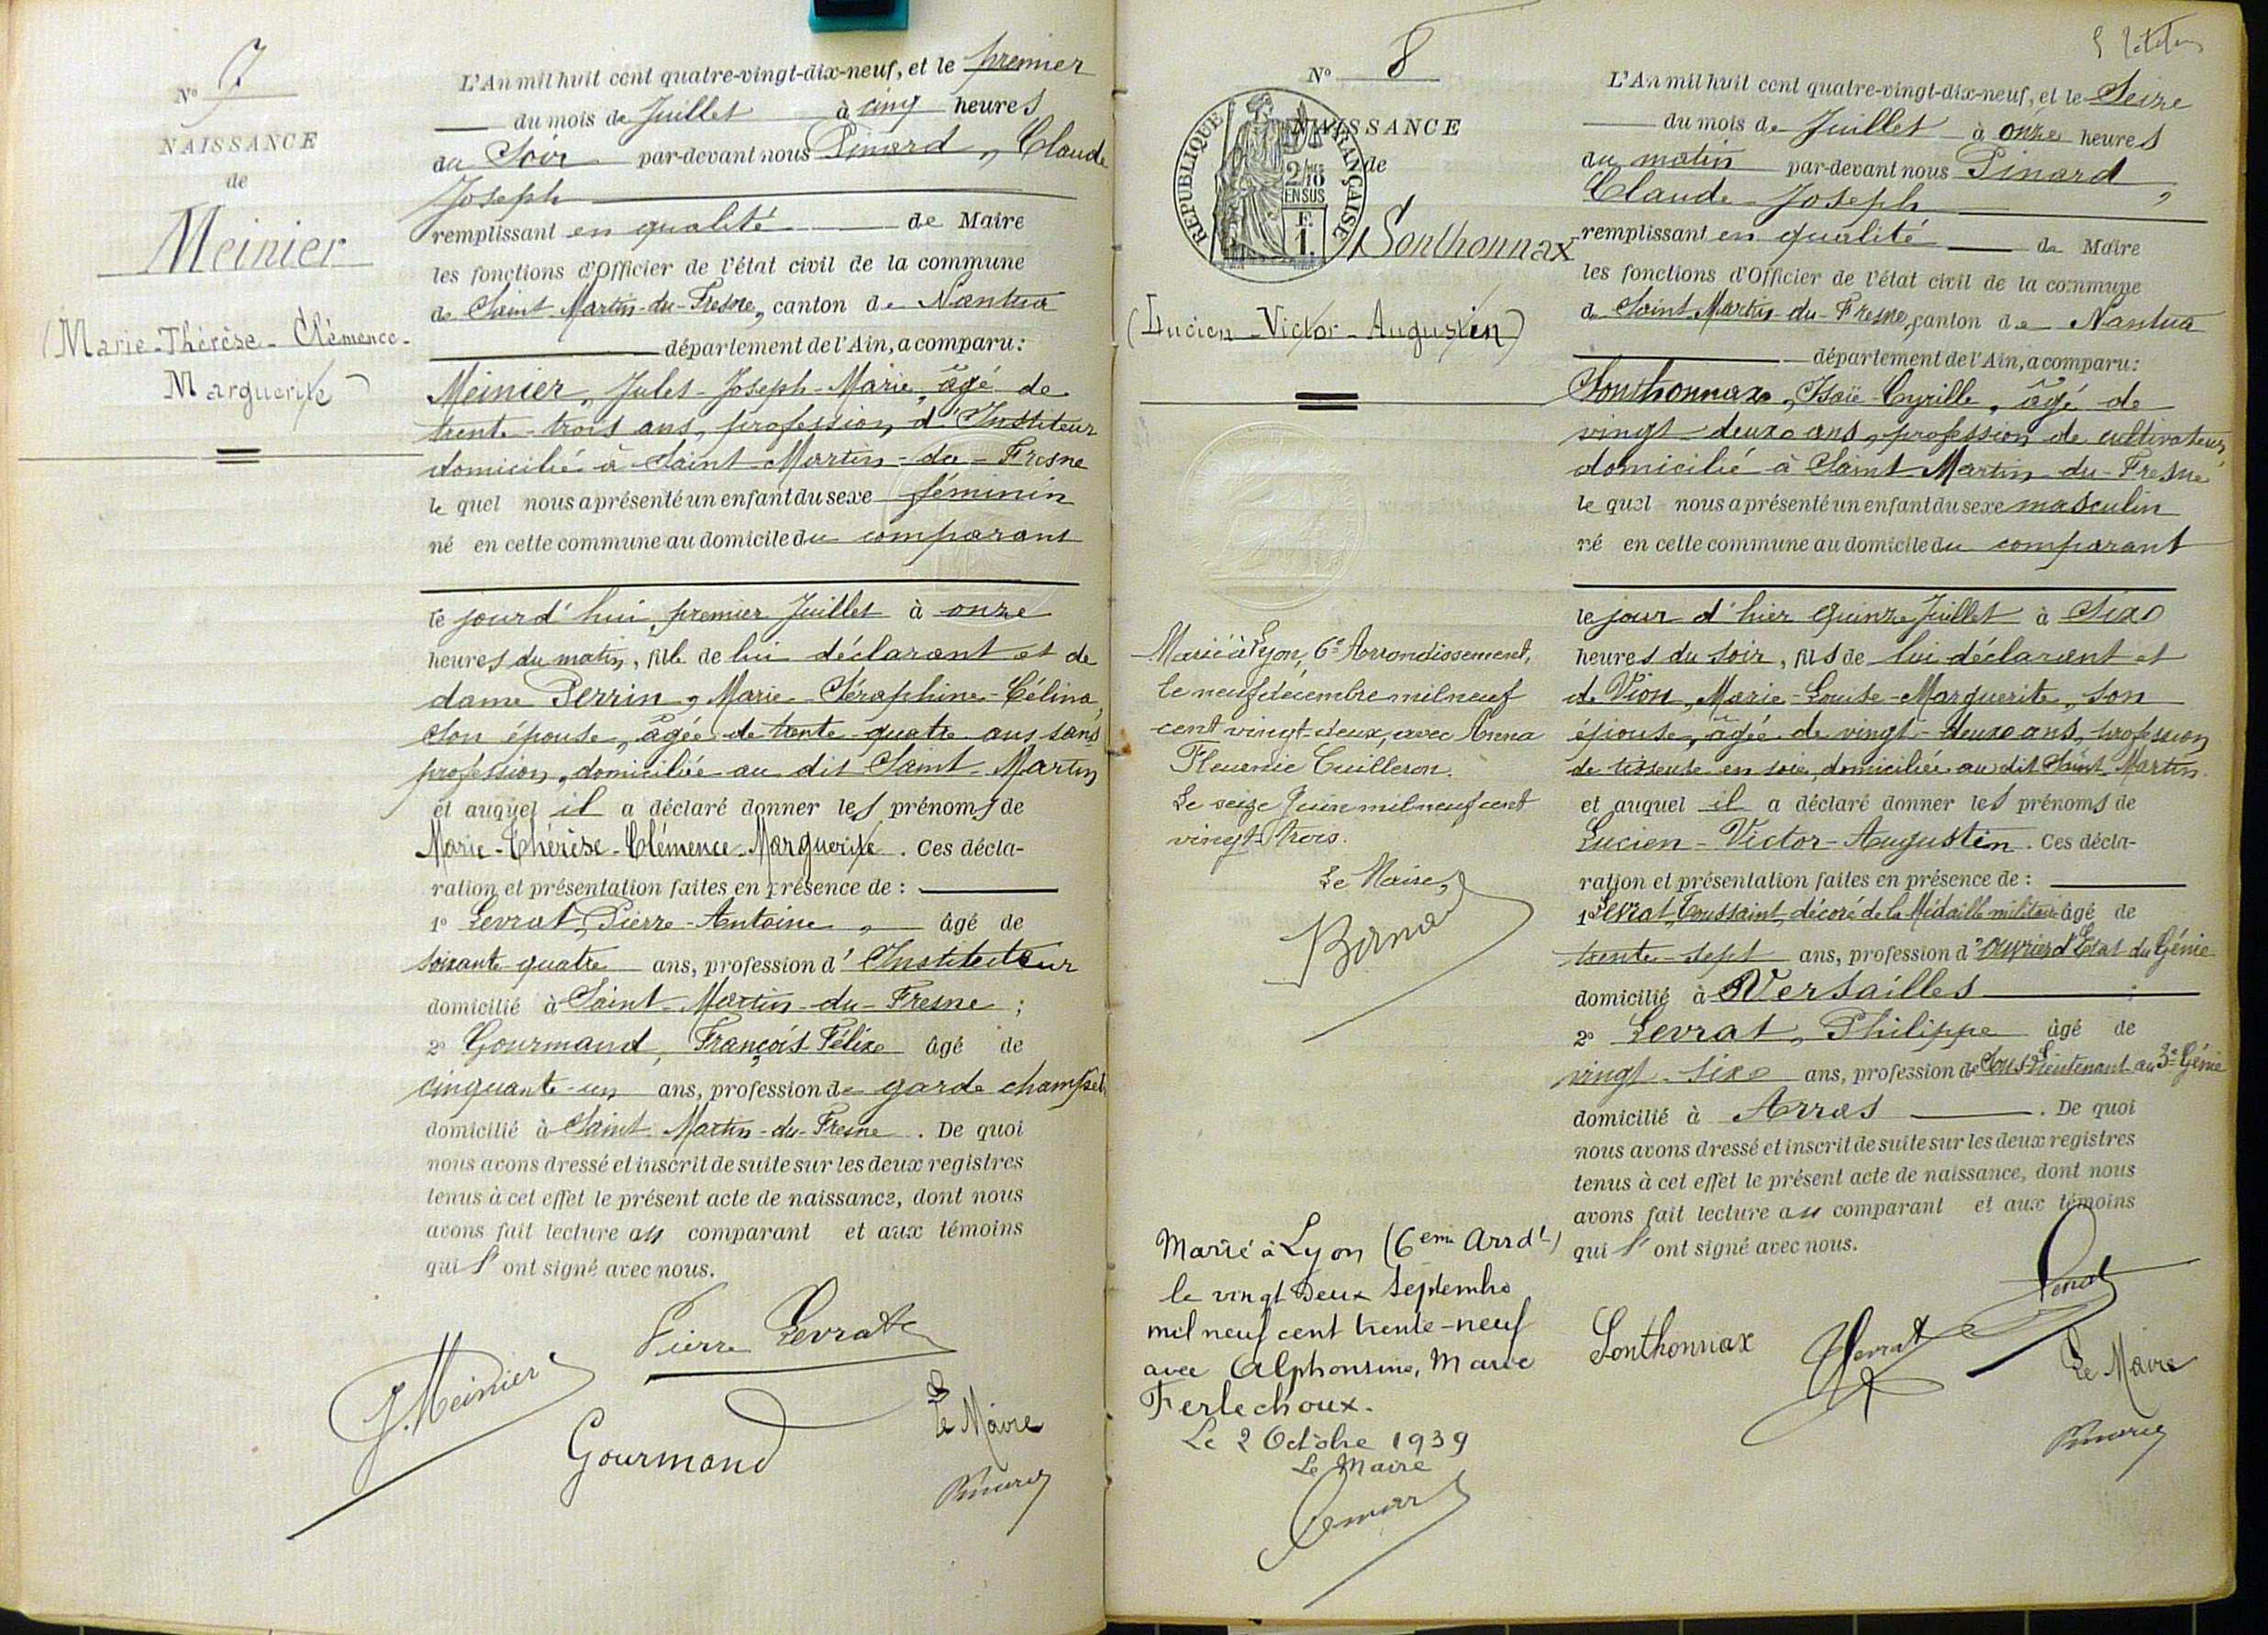 N° 7
NAISSANCE
de
Meinier
(Marie-Thérèse-Clémence-
Marguerite)
L'An mil huit cent quatre-vingt-dix-neuf, et le premier
du mois de Juillet à cinq heures
du Soir par-devant nous Pinard, Claude
Joseph
remplissant en qualité de Maire
les fonctions d'Officier de l'état civil de la commune
de Saint-Martin-du-Fresne, canton de Nantua
département de l'Ain, a comparu:
Meinier, Jules-Joseph-Marie, âgé de
trente-trois ans, profession d'Instituteur
domicilié à Saint-Martin-du-Fresne
le quel nous a présenté un enfant du sexe féminin
né en cette commune au domicile du comparant
le jour d'hui, premier Juillet à onze
heures du matin, fille de lui déclarant et de
dame Perrin, Marie-Séraphine-Célina,
son épouse, âgée de trente-quatre ans sans
profession, domiciliée au dit Saint-Martin
et auquel il a déclaré donner les prénoms de
Marie-Thérèse-Clémence-Marguerite. Ces décla-
ration et présentation faites en présence de :
1° Levrat, Pierre-Antoine, âgé de
soixante-quatre ans, profession d'Instituteur
domicilié à Saint-Martin-du-Fresne ;
2° Gourmand, François-Félix âgé de
cinquante-un ans, profession de garde champêt
domicilié à Saint-Martin-du-Fresne. De quoi
nous avons dressé et inscrit de suite sur les deux registres
tenus à cet effet le présent acte de naissance, dont nous
avons fait lecture au comparant et aux témoins
qui l'ont signé avec nous.
Pierre Levrat
J. Meinier
Gourmand
Le Maire
Pinard
N° 8
NAISSANCE
de
RÉPUBLIQUE FRANÇAISE
2/10 EN SUS
F. 1.
Sonthonnax
(Lucien-Victor-Augustin)
Marié à Lyon, 6e Arrondissement,
le neuf décembre mil neuf
cent vingt-deux, avec Anna
Fleurie Cuilleron.
Le seize Juin mil neuf cent
vingt-trois.
Le Maire,
Marié à Lyon (6eme Arrdt)
le vingt deux Septembre
mil neuf cent trente-neuf
avec Alphonsine, Marie
Ferlechoux.
Le 2 Octobre 1939
Le Maire
L'An mil huit cent quatre-vingt-dix-neuf, et le Seize
du mois de Juillet à onze heures
du matin par-devant nous Pinard,
Claude-Joseph
remplissant en qualité de Maire
les fonctions d'Officier de l'état civil de la commune
de Saint-Martin-du-Fresne, canton de Nantua
département de l'Ain, a comparu:
Sonthonnax, Isaïe-Cyrille, âgé de
vingt-deux ans, profession de cultivateur,
domicilié à Saint-Martin-du-Fresne
le quel nous a présenté un enfant du sexe masculin
né en cette commune au domicile du comparant
le jour d'hier quinze Juillet à Six
heures du soir, fils de lui déclarant et
de Vion, Marie-Louise-Marguerite, son
épouse, âgée de vingt-deux ans, profession
de tisseuse en soie, domiciliée au dit Saint-Martin.
et auquel il a déclaré donner les prénoms de
Lucien-Victor-Augustin. Ces décla-
ration et présentation faites en présence de :
1° Levrat, Toussaint, décoré de la Médaille militaire âgé de
trente-sept ans, profession d'ouvrier d'Etat du Génie
domicilié à Versailles ;
2° Levrat, Philippe âgé de
vingt-six ans, profession de Sous Lieutenant au 3e Génie
domicilié à Arras. De quoi
nous avons dressé et inscrit de suite sur les deux registres
tenus à cet effet le présent acte de naissance, dont nous
avons fait lecture au comparant et aux témoins
qui l'ont signé avec nous.
Sonthonnax
Levrat
Levrat
Le Maire
Pinard